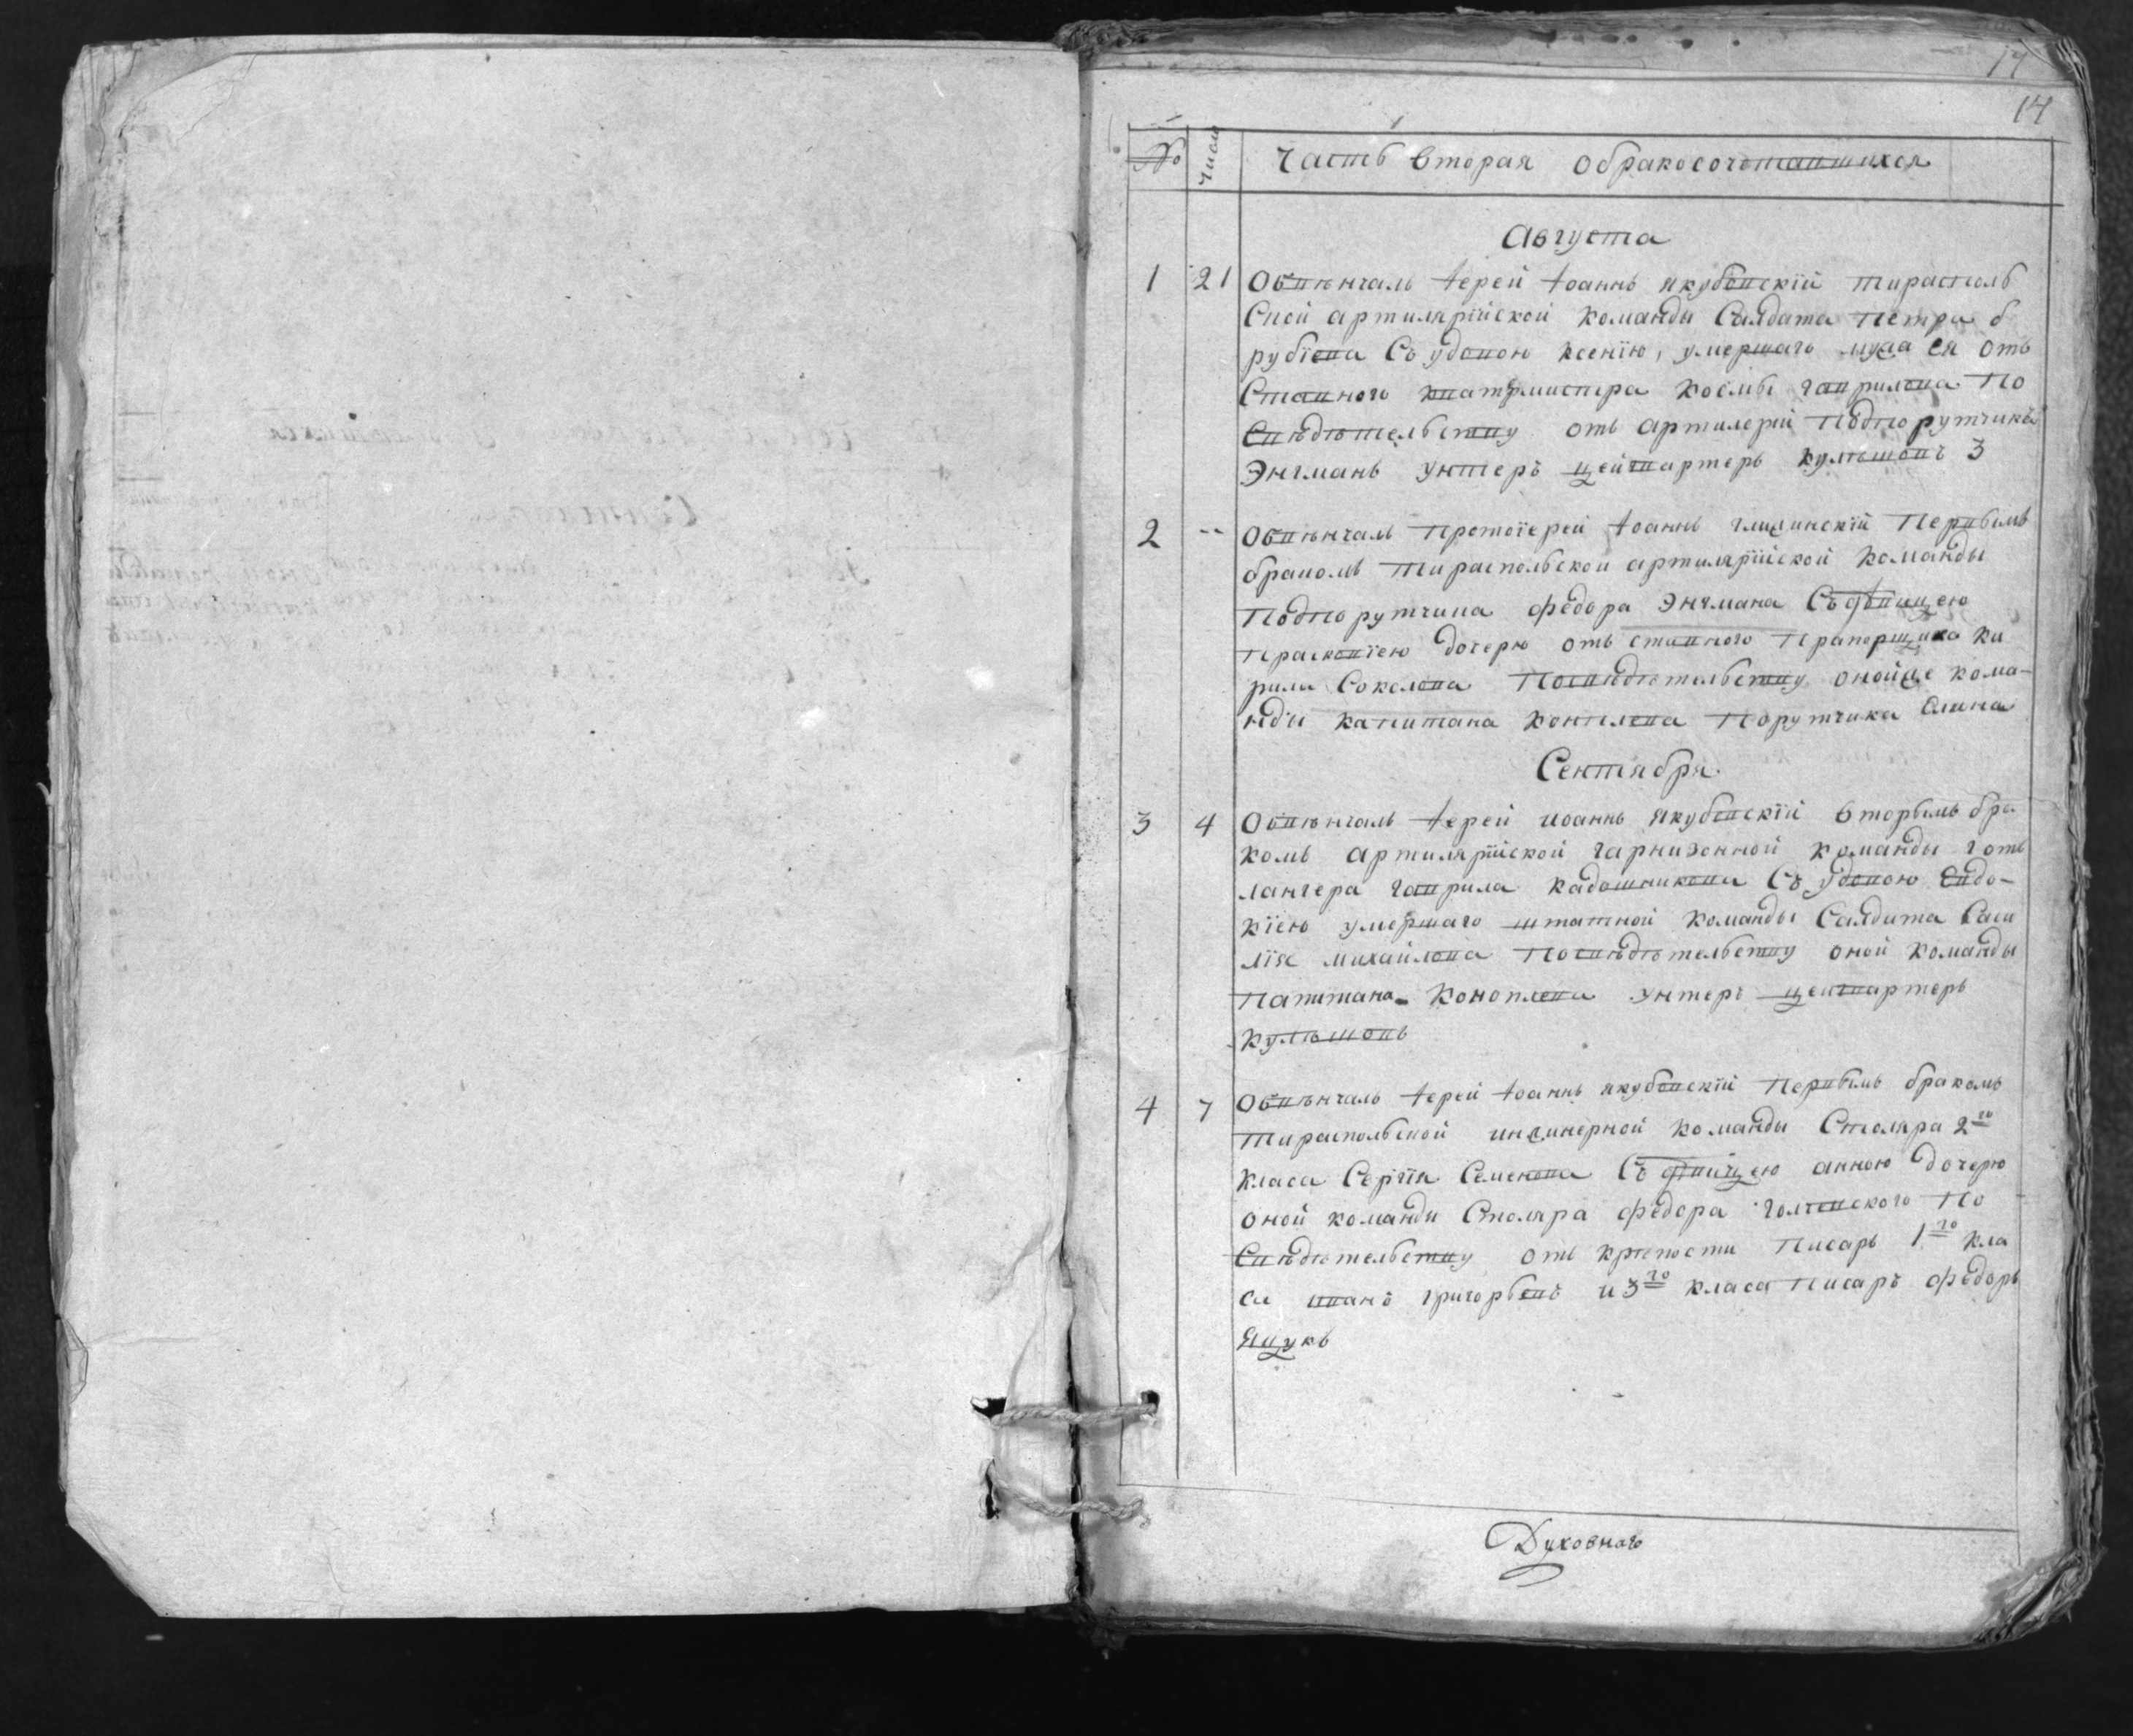 17
17
№ число Часть вторая обракосочотавшихся
Августа
1 21 Обвѣнчалъ іерей іоаннъ якубовскїй тирасполь
ской артилярїйской команды Салдата Петра б
рубїева Съ удовою ксенїю, умершаго мужа ея отъ
Ставного кватѣрмистра космы гаврилова По
Свѣдѣтельству отъ артилерїи Подпорутчикъ
Энгманъ унтеръ цейгвартеръ кулѣшовъ 3
2 -- Обвѣнчалъ Протоїерей іоаннъ глижинскїй Первымъ
бракомъ тираспольской артилярїйской команды
Подпорутчика федора Энгмана Съ дѣвицею
Прасковїею дочерю отъ ставного Прапорщика Ки
рила Соколова Посвѣдѣтельству онойже кома-
нды капитана коноплева Порутчика Слина
Сентября.
3 4 Обвѣнчалъ іерей иоаннъ якубовскїй вторымъ бра
комъ артилярїйской гарнизонной команды готъ
лангера гаврила кадошникова Съ удовою Евдо-
кїею умершаго штатной команды Салдата Васи
лїя михайлова Посвѣдѣтельству оной команды
Капитана Коноплева унтеръ цейгвартеръ
кулѣшовъ
4 7 Обвѣнчалъ іерей іоаннъ якубовскїй Первымъ бракомъ
тираспольской инжинерной команды Столяра 2го
класа Сергїя Семенова Съ дѣвицею анною дочерю
оной команды Столяра федора голчевского По
Свѣдѣтельству отъ крѣпости Писарь 1го кла
са иванъ григорьевъ и 3го класа Писаръ федоръ
Ящукъ
Духовнаго